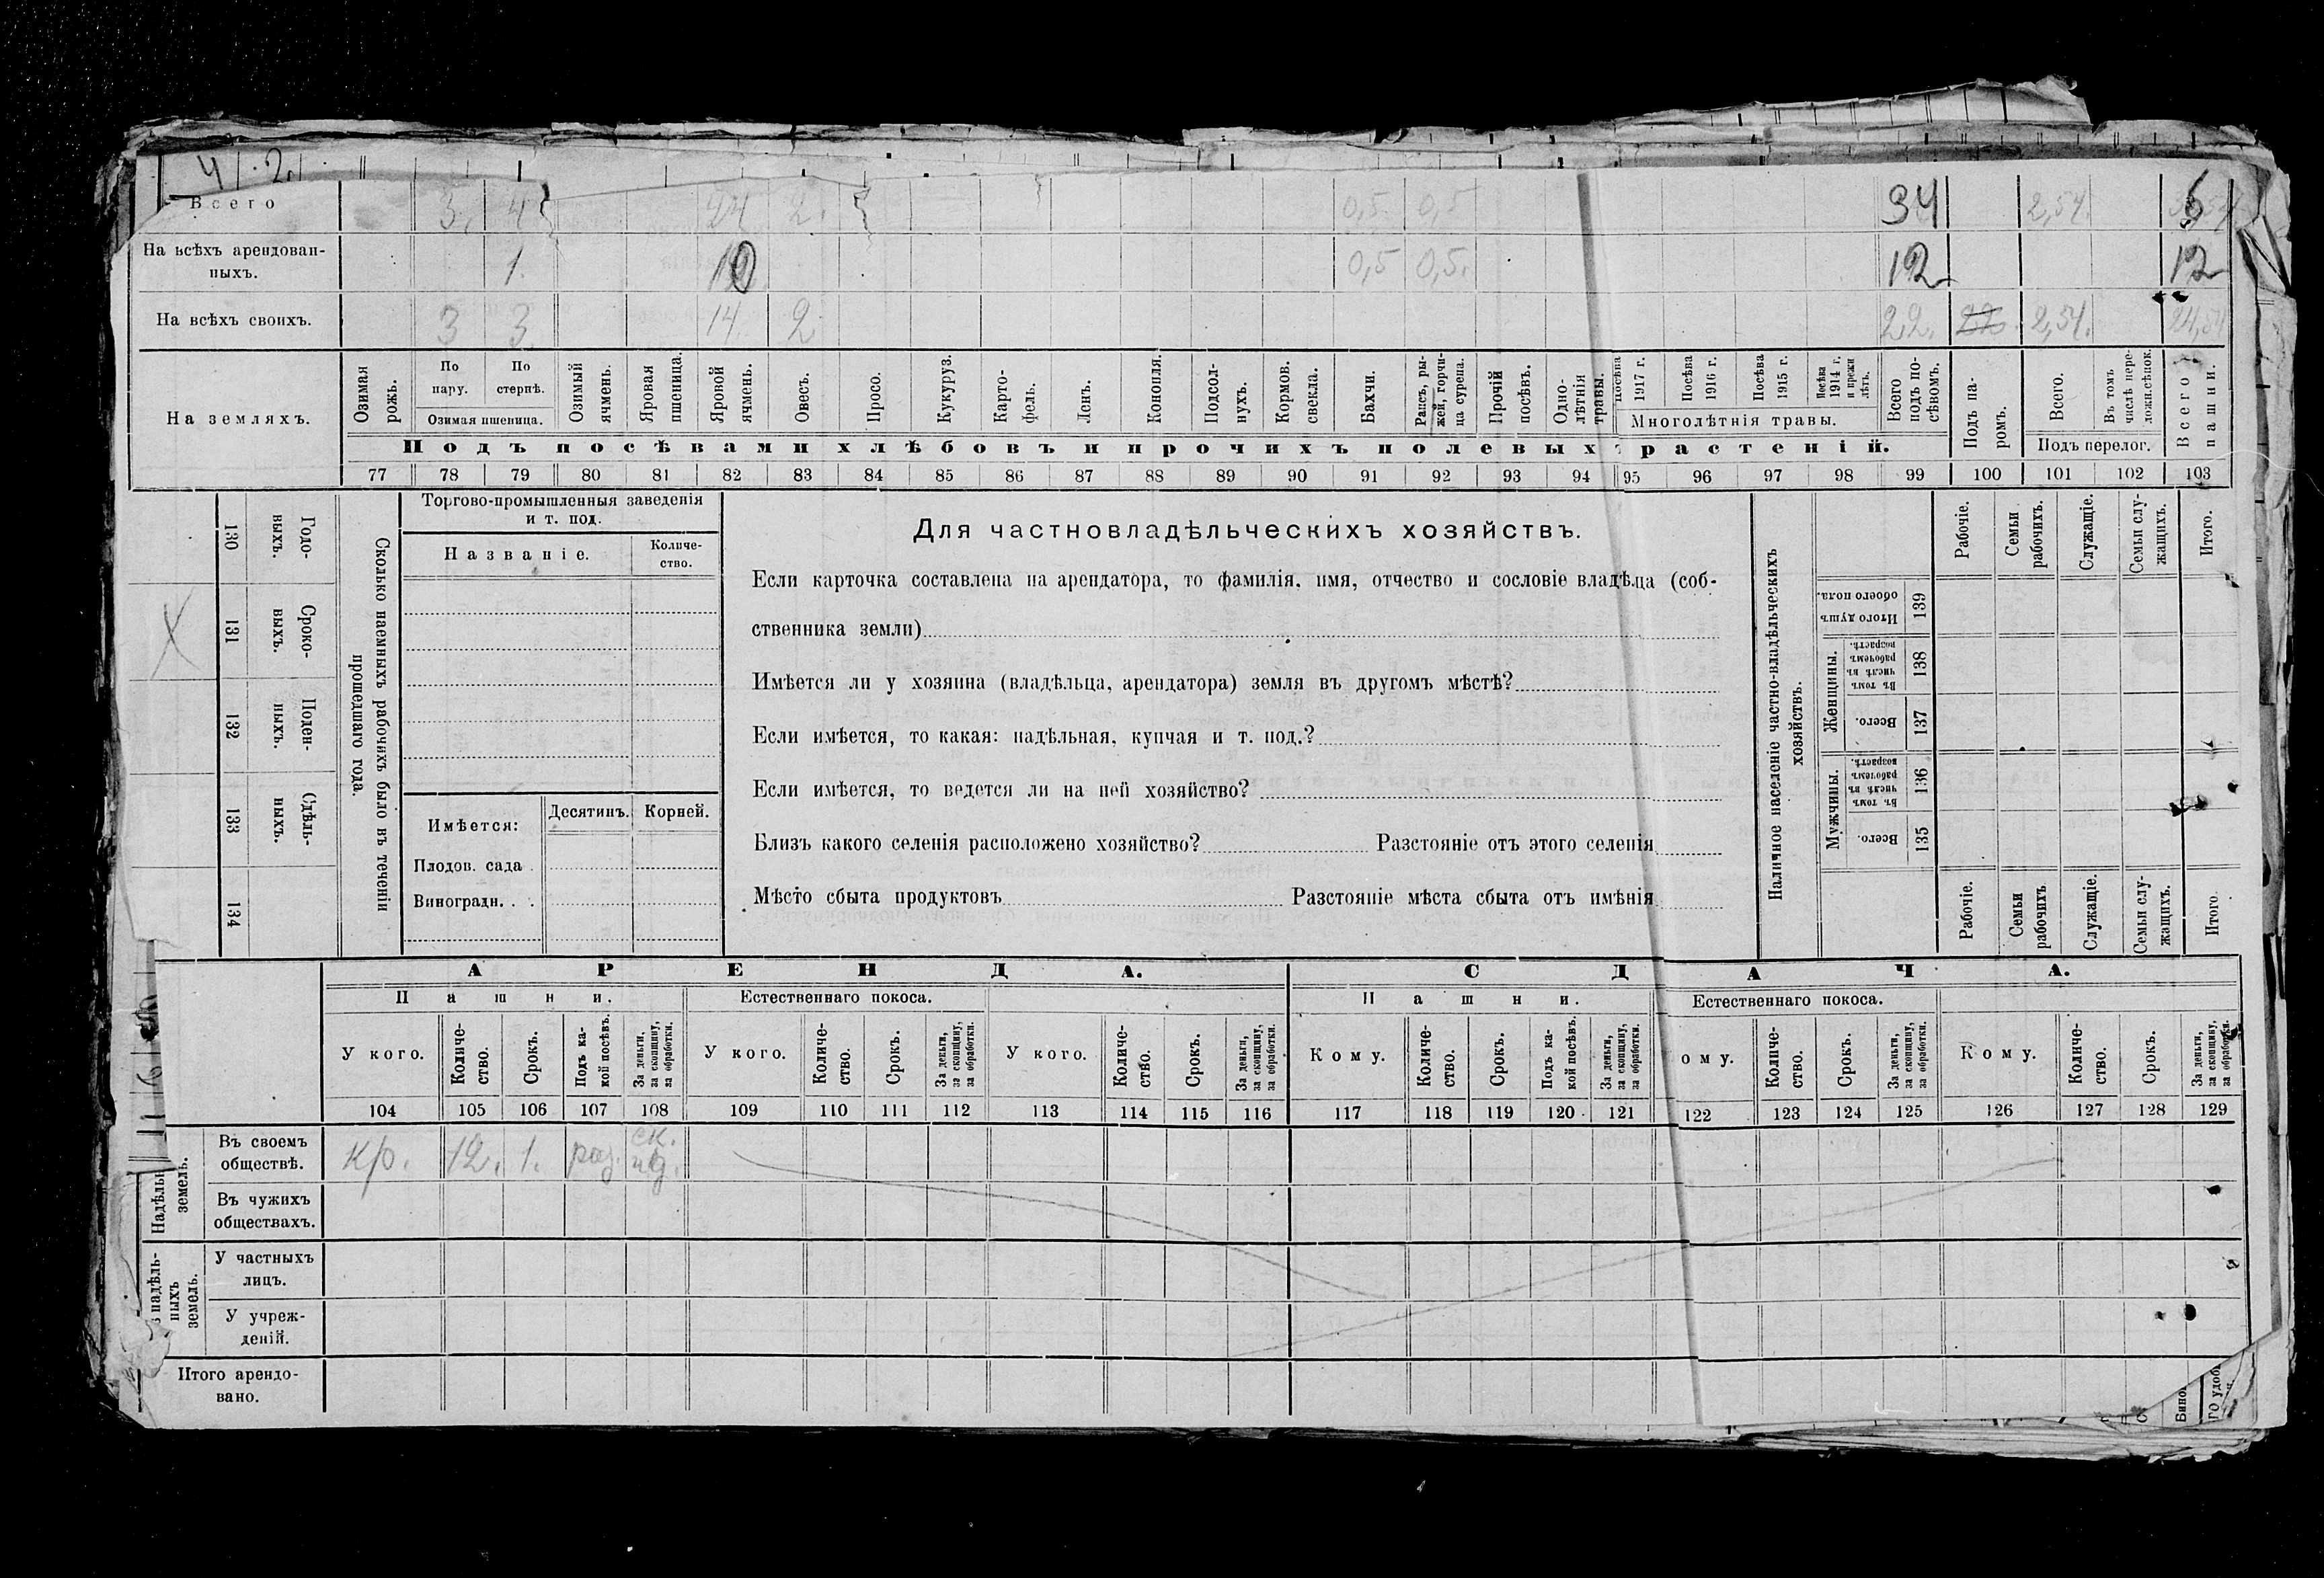 4 2.
Всего 3. 4 24 2. 0,5 0,5 34 2,54. 6
На всѣхъ арендован-
ныхъ. 1. 10 0,5 0,5. 12 12
На всѣхъ своихъ. 3 3 14 2 22. 22 2,54. 24,54
На земляхъ.
Озимая рожь.
По пару.
По стернѣ.
Озимая пшеница.
Озимый ячмень.
Яровая пшеница.
Яровой ячмень.
Овесъ.
Просо.
Кукуруз.
Карто-
фель.
Ленъ.
Конопля.
Подсол-
нухъ.
Кормов.
свекла.
Бахчи.
Рапсъ, ры-
жей, горчи-
ца сурепа.
Прочій
посѣвъ.
Одно-
лѣтнія
травы.
Посѣва
1917 г.
Посѣва
1916 г.
Посѣва
1915 г.
Посѣва
1914 г.
и прежн
лѣтъ.
Многолѣтнія травы.
Всего
подъ по-
сѣвомъ.
Подъ па-
ромъ.
Всего.
Въ томъ
числѣ пере-
ложн.сѣнок.
Подъ перелог.
Всего
пашни.
Подъ посѣвами хлѣбовъ и прочихъ полевыхъ растеній.
77 78 79 80 81 82 83 84 85 86 87 88 89 90 91 92 93 94 95 96 97 98 99 100 101 102 103
Годо-
выхъ.
130
Сроко-
выхъ.
131
Поден-
ныхъ.
132
Сдѣль-
ныхъ.
133
134
Сколько наемныхъ рабочихъ было въ теченіи
прошедшаго года.
Торгово-промышленныя заведенія
и т. под.
Названіе.
Количе-
ство.
Имѣется: Десятинъ. Корней.
Плодов. сада
Виноградн. . .
Для частновладѣльческихъ хозяйствъ.
Если карточка составлена на арендатора, то фамилія, имя, отчество и сословіе владѣльца (соб-
ственника земли)
Имѣется ли у хозяина (владѣльца, арендатора) земля въ другомъ мѣстѣ?
Если имѣется, то какая: надѣльная, купчая и т. под.?
Если имѣется, то ведется ли на ней хозяйство?
Близъ какого селенія расположено хозяйство? Разстояніе отъ этого селенія
Мѣсто сбыта продуктовъ Разстояніе мѣста сбыта отъ имѣнія
Наличное населеніе частно-владѣльческихъ
хозяйствъ.
Рабочіе.
Семьи
рабочихъ.
Служащіе.
Семьи слу-
жащихъ.
Итого.
Итого душъ
обоего пола.
139
Женщины.
Въ томъ
числѣ въ
рабочемъ
возрастѣ.
138
Всего.
137
Мужчины.
Въ томъ
числѣ въ
рабочемъ
возрастѣ.
136
Всего.
135
Рабочіе.
Семьи
рабочихъ
Служащіе.
Семьи слу-
жащихъ.
Итого
АРЕНДА. СДАЧА.
Пашни. Естественнаго покоса. Пашни. Естественнаго покоса.
У кого.
Количе-
ство.
Срокъ.
Подъ ка-
кой посѣвъ.
За деньги,
за скопщину,
за обработки.
У кого.
Количе-
ство.
Срокъ.
За деньги,
за скопщину,
за обработки.
У кого.
Количе-
ство.
Срокъ.
За деньги,
за скопщину,
за обработки.
Кому.
Количе-
ство.
Срокъ.
Подъ ка-
кой посѣвъ.
За деньги,
за скопщину,
за обработки.
ому.
Количе-
ство.
Срокъ.
За деньги,
за скопщину,
за обработки.
Кому.
Количе-
ство.
Срокъ.
За деньги,
за скопщину,
за обработки.
104 105 106 107 108 109 110 111 112 113 114 115 116 117 118 119 120 121 122 123 124 125 126 127 128 129
Надѣльн
земель.
Въ своемъ
обществѣ. кр. 12. 1. раз. ск.
Въ чужихъ
обществахъ.
надѣль-
ныхъ
земель.
У частныхъ
лицъ.
У учреж-
деній.
Итого арендо-
вано.